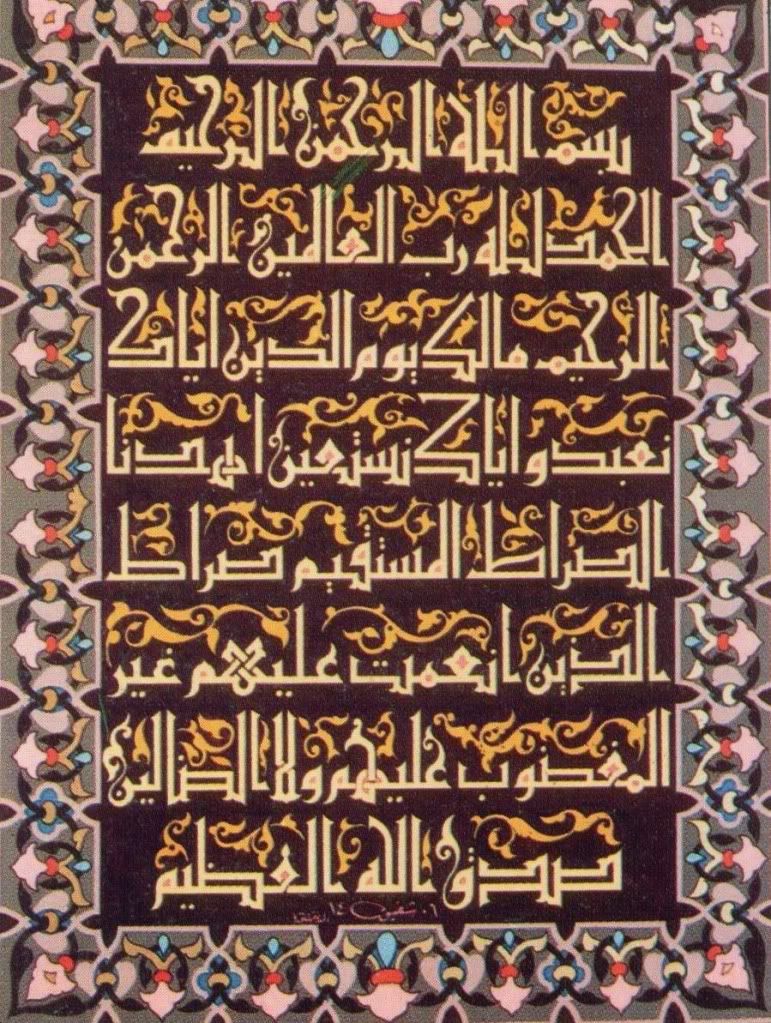 بسم الله الرحمن الرحيم
الحمد لله رب العالمين الرحمن
الرحيم مالك يوم الدين اياك
نعبد و اياك نستعين اهدنا
الصراط المستقيم صراط
الذين انعمت عليهم غير
المغضوب عليهم ولا الضالين
صدق الله العظيم